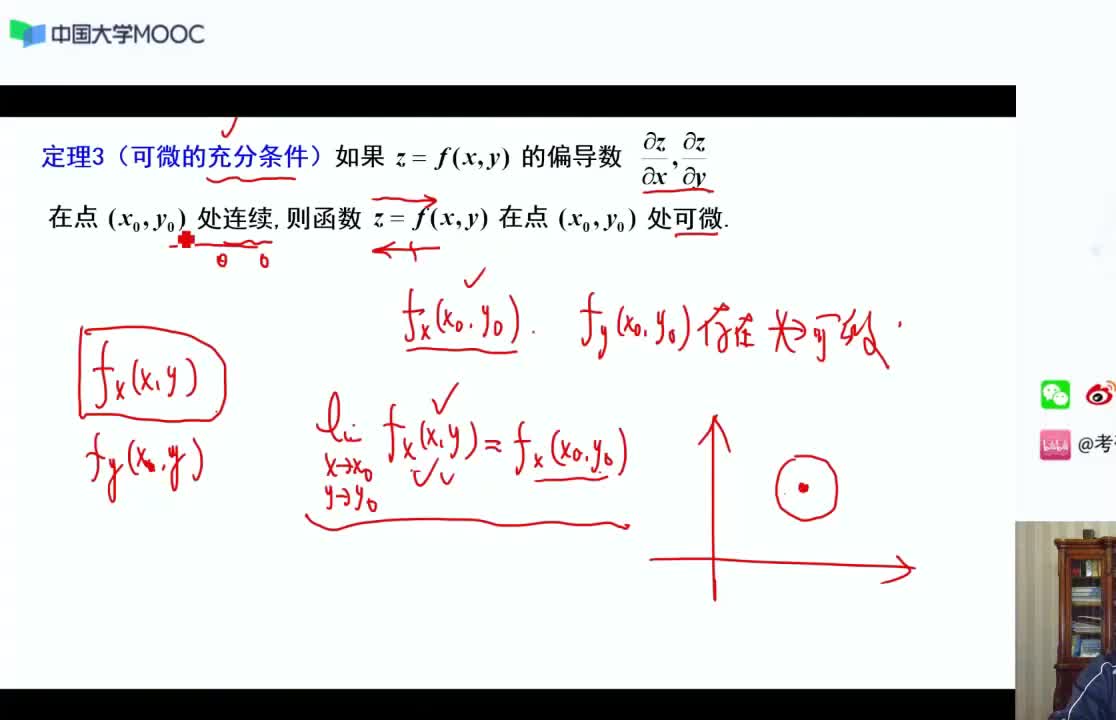 中国大学MOOC
定理3（可微的充分条件）如果 z = f(x,y) 的偏导数 ∂z/∂x, ∂z/∂y
在点 (x₀,y₀) 处连续,则函数 z = f(x,y) 在点 (x₀,y₀) 处可微.
fₓ(x₀,y₀). f_y(x₀,y₀)存在
fₓ(x,y)
lim x→x₀ y→y₀ fₓ(x,y) = fₓ(x₀,y₀)
f_y(x,y)
@考